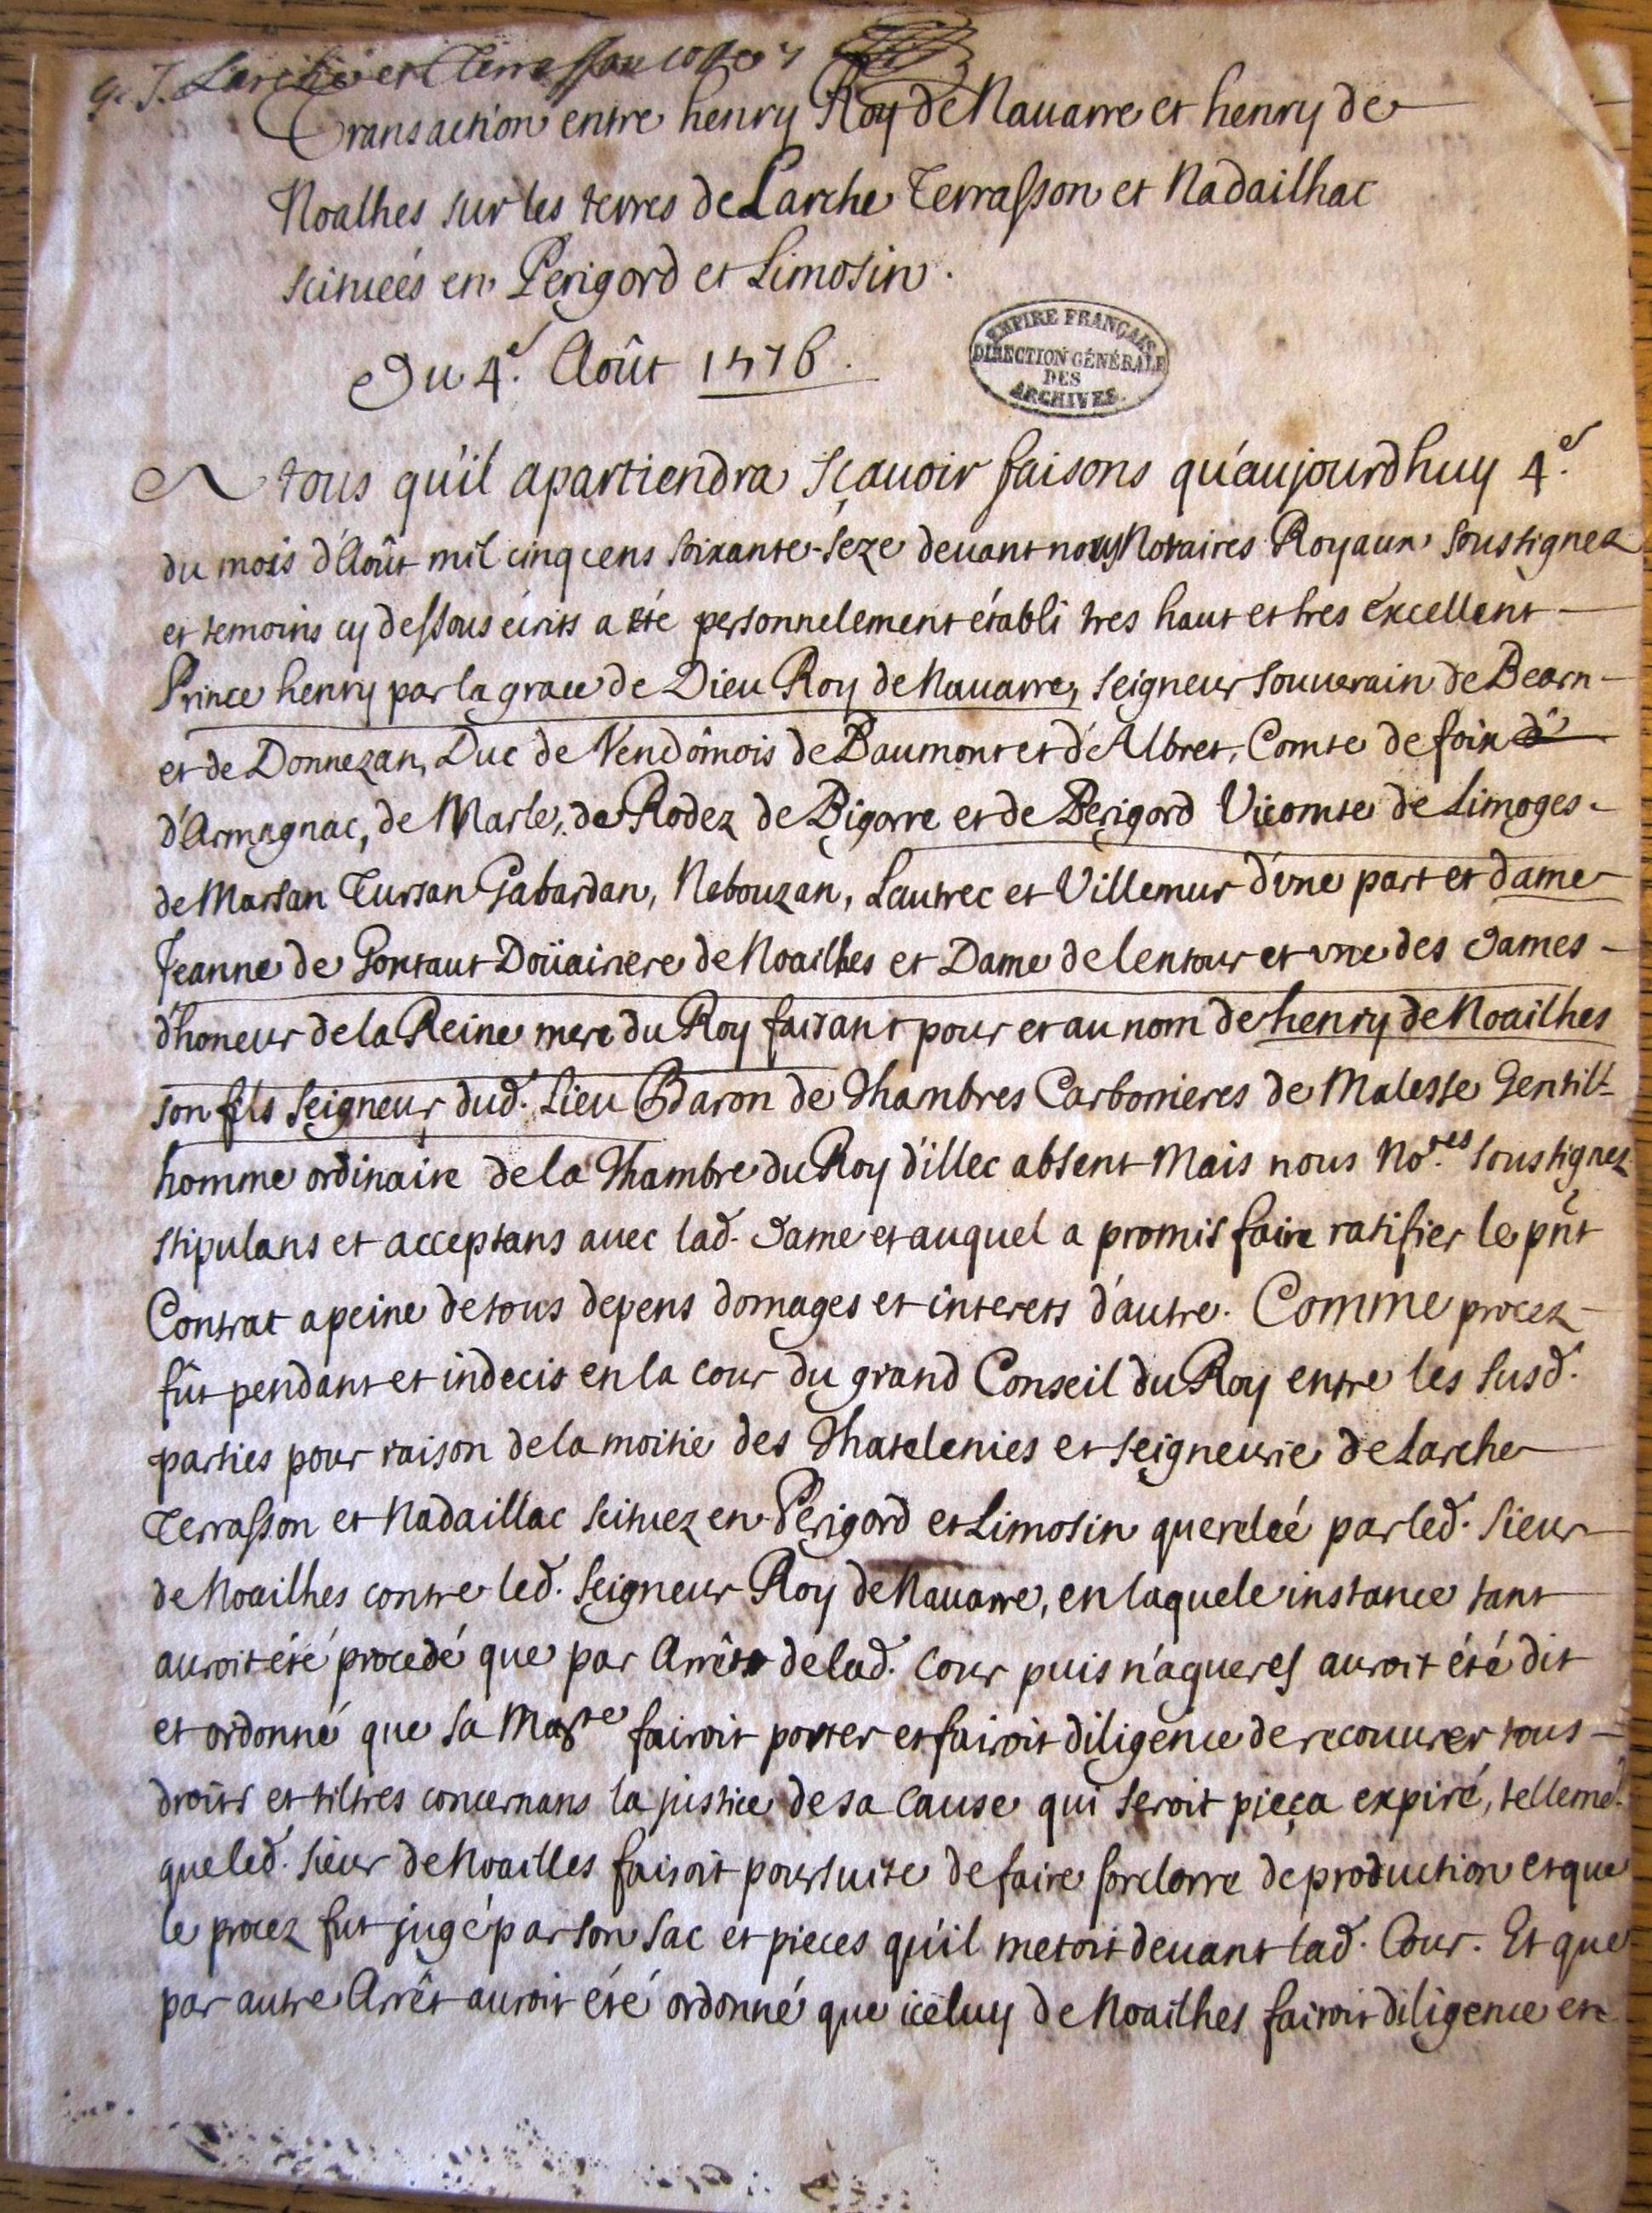 Larche et Terrasson
Transaction entre henry Roy de Nauarre et henry de
Noalhes sur les terres de Larche Terrasson et Nadailhac
scituées en Perigord et Limosin.
Du 4.e Août 1576.
EMPIRE FRANÇAIS
DIRECTION GÉNÉRALE
DES
ARCHIVES
A tous qu'il apartiendra sçauoir faisons qu'aujourdhuy 4.e
du mois d'Août mil cinq cens soixante-seze deuant nous Notaires Royaux soussignez
et temoins cy dessous écrits a été personnelement établi tres haut et tres éxcellent
Prince henry par la grace de Dieu Roy de Nauarre, seigneur souuerain de Bearn
et de Donnezan, Duc de Vendômois de Baumont et d'Albret, Comte de foix
d'Armagnac, de Marle, de Rodez de Bigorre et de Perigord Vicomte de Limoges
de Marsan Tursan Gabardan, Nebouzan, Lautrec et Villemur d'une part et dame
Jeanne de Gontaut Doüairiere de Noailhes et Dame de lentour et vne des dames
d'honeur de la Reine mere du Roy faisant pour et au nom de henry de Noailhes
son fils seigneur dud. Lieu Baron de Chambres Carbonieres de Malesse Gentil-
homme ordinaire de la Chambre du Roy d'illec absent Mais nous No.res soussignez
stipulans et acceptans auec lad. dame et auquel a promis faire ratifier le pñt
Contrat a peine de tous depens domages et interets d'autre. Comme procez
fût pendant et indecis en la cour du grand Conseil du Roy entre les susd.
parties pour raison de la moitié des Chatelenies et seigneurie de Larche
Terrasson et Nadaillac scituez en Perigord et Limosin querelée par led. sieur
de Noailhes contre led. seigneur Roy de Nauarre, en laquele instance tant
auroit été procedé que par Arrêt de lad. Cour puis n'agueres auroit été dit
et ordonné que sa Maj.te fairoit porter et fairoit diligence de recouurer tous
droits et tiltres concernans la justice de sa cause qui seroit pieça expiré, tellemt.
que led. sieur de Noailles faisoit poursuite de faire forclorre de production et que
le procez fut jugé par son sac et pieces qu'il metoit deuant lad. Cour. Et que
par autre Arrêt auroit été ordonné que iceluy de Noailhes fairoit diligence et